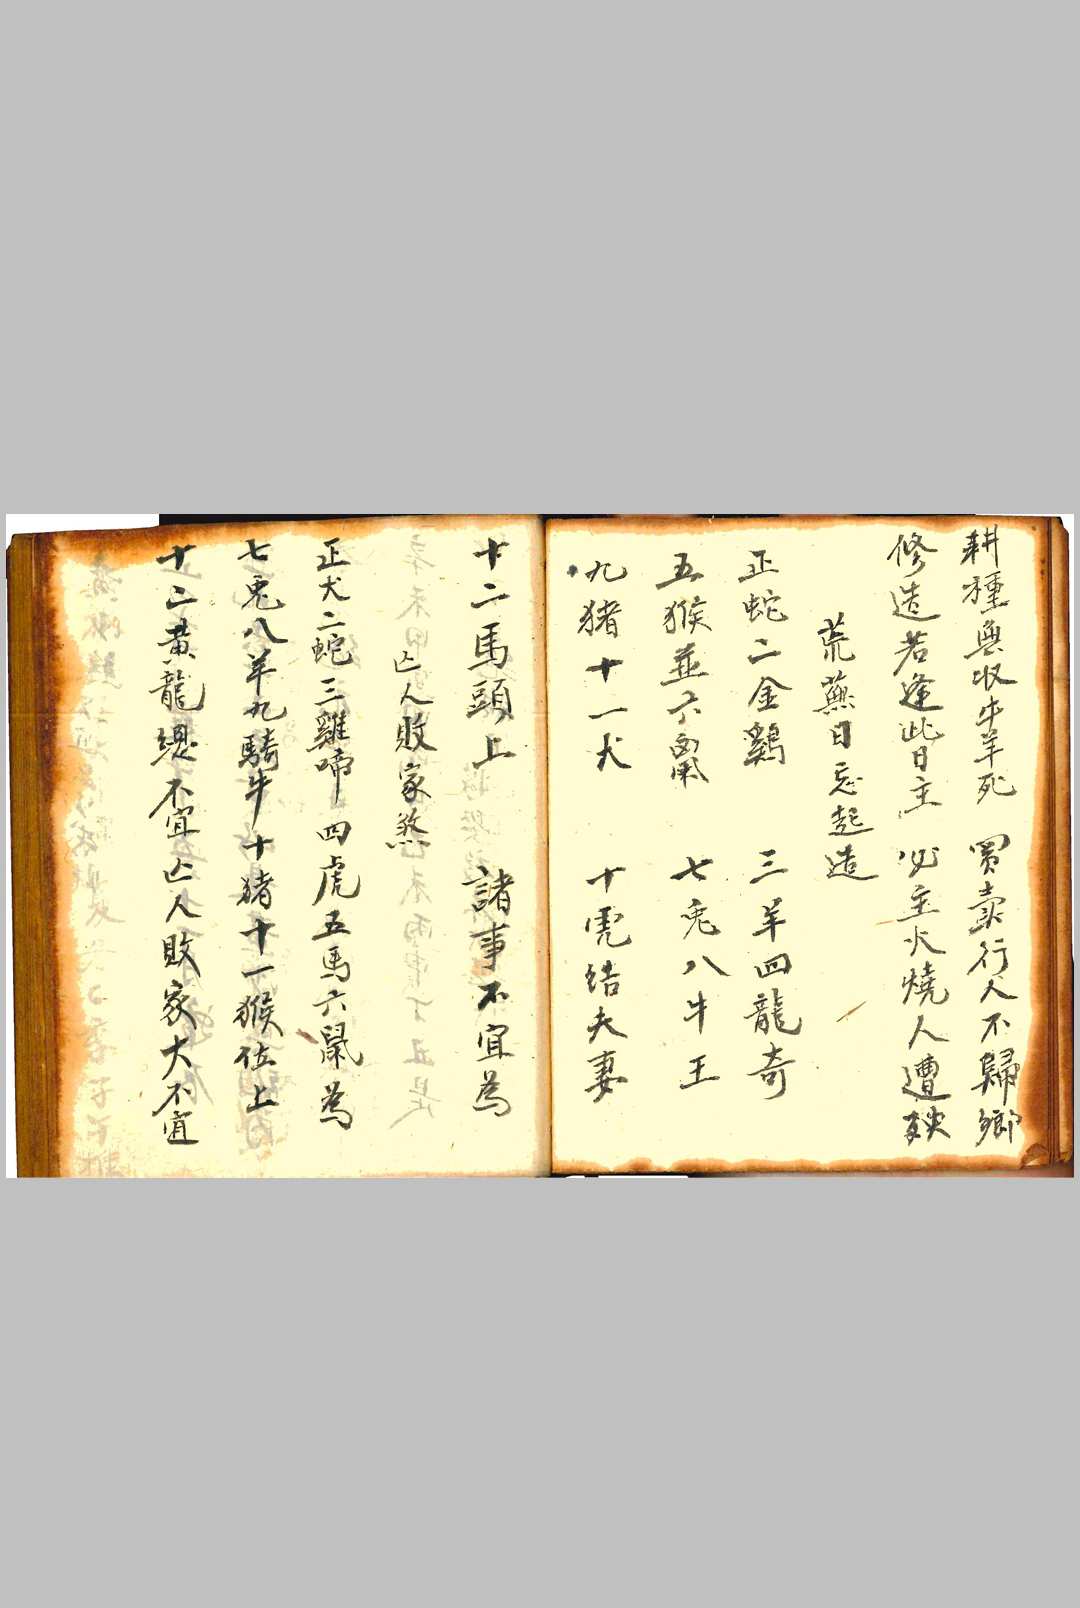 耕種無收牛羊死 買賣行人不歸鄉
修造若逢此日主 必主火燒人遭殃
荒蕪日忌起造
正蛇二金鷄 三羊四龍奇
五猴並六鼠 七兎八牛王
九猪十一犬 十虎结夫妻
十二馬頭上 諸事不宜為
亡人敗家煞
正犬二蛇三雞啼四虎五馬六鼠為
七兎八羊九騎牛十猪十一猴位上
十二黄龍總不宜亡人敗家大不宜